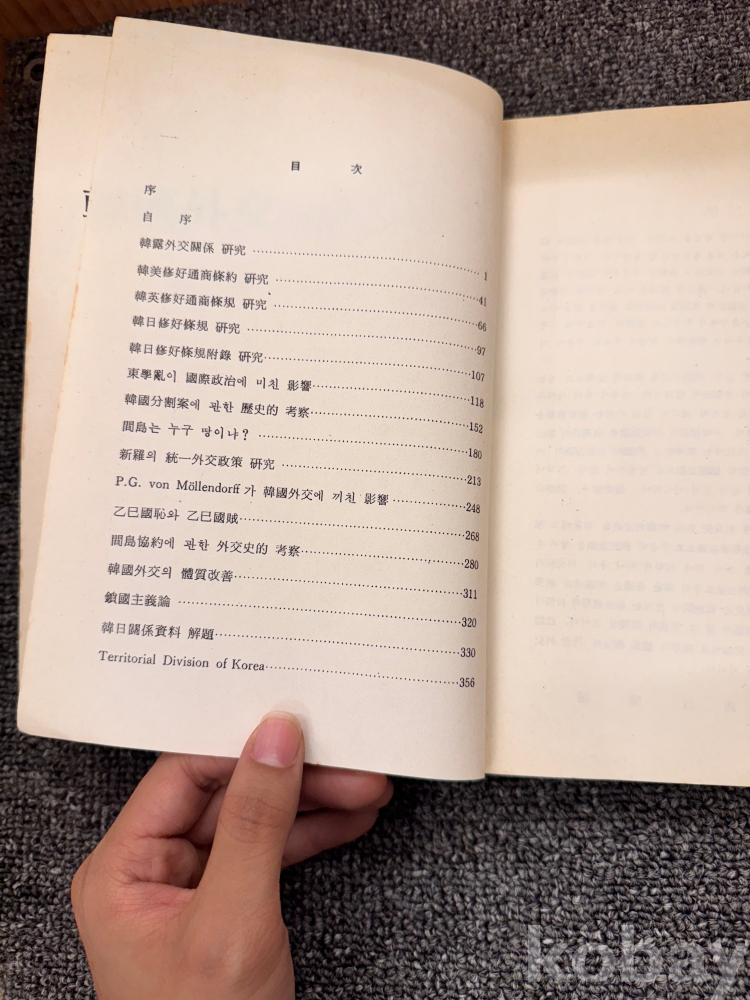 目 次
序
自 序
韓露外交關係 研究 ……………………………………………1
韓美修好通商條約 研究 ……………………………………41
韓英修好通商條規 研究 ……………………………………66
韓日修好條規 研究 …………………………………………97
韓日修好條規附錄 研究……………………………………107
東學亂이 國際政治에 미친 影響…………………………118
韓國分割案에 관한 歷史的 考察…………………………152
間島는 누구 땅이냐? ………………………………………180
新羅의 統一外交政策 研究 ………………………………213
P.G. von Möllendorff 가 韓國外交에 끼친 影響 …………248
乙巳國恥와 乙巳國賊………………………………………268
間島協約에 관한 外交史的 考察…………………………280
韓國外交의 體質改善………………………………………311
鎖國主義論 …………………………………………………320
韓日關係資料 解題…………………………………………330
Territorial Division of Korea………………………………356
kobay